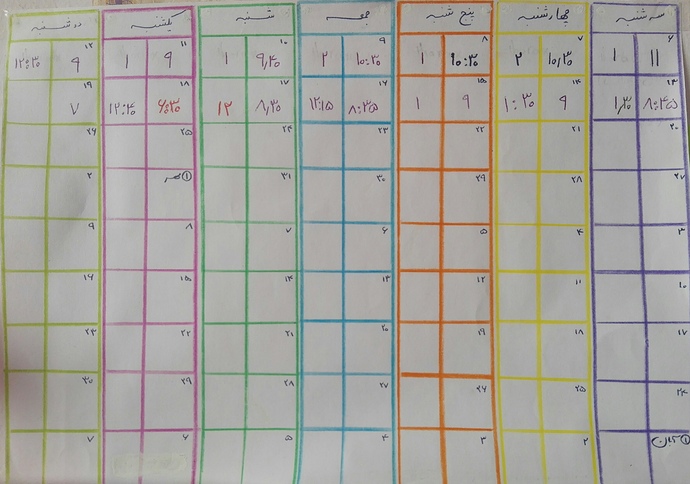 سه شنبه چهارشنبه پنج شنبه جمعه شنبه یکشنبه دوشنبه
۶ ۷ ۸ ۹ ۱۰ ۱۱ ۱۲
۱۱ ۱ ۱۰,۳۰ ۲ ۱۰:۳۰ ۱ ۱۰:۳۰ ۲ ۹,۴۰ ۱ ۹ ۱ ۹ ۱۲:۳۰
۱۳ ۱۴ ۱۵ ۱۶ ۱۷ ۱۸ ۱۹
۸:۴۵ ۱,۳۰ ۹ ۱:۳۰ ۹ ۱ ۸:۳۵ ۱۲:۱۵ ۸,۳۰ ۱۲ ۶:۳۰ ۱۲:۴۰ ۷
۲۰ ۲۱ ۲۲ ۲۳ ۲۴ ۲۵ ۲۶
۲۷ ۲۸ ۲۹ ۳۰ ۳۱ ۱ مهر ۲
۳ ۴ ۵ ۶ ۷ ۸ ۹
۱۰ ۱۱ ۱۲ ۱۳ ۱۴ ۱۵ ۱۶
۱۷ ۱۸ ۱۹ ۲۰ ۲۱ ۲۲ ۲۳
۲۴ ۲۵ ۲۶ ۲۷ ۲۸ ۲۹ ۳۰
۱ آبان ۲ ۳ ۴ ۵ ۶ ۷